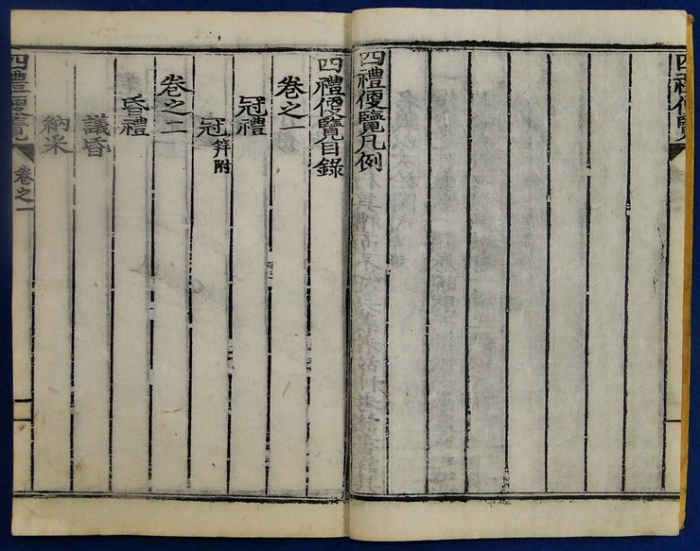 四禮便覽
四禮便覽凡例
四禮便覽目錄
卷之一
冠禮
冠笄附
卷之二
昏禮
議昏
納采
四禮便覽 卷之一 一